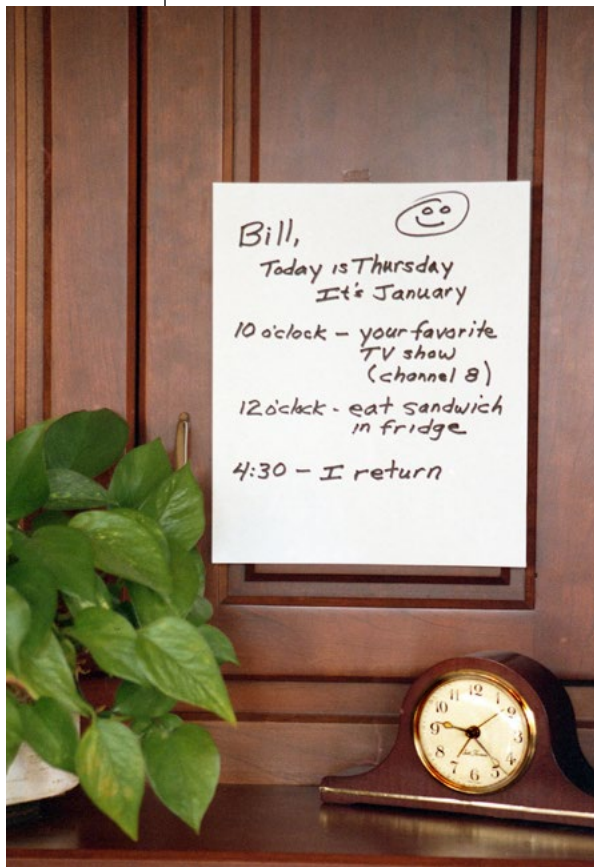 Bill,
Today is Thursday
It's January
10 o'clock – your favorite
TV show
(channel 8)
12 o'clock - eat sandwich
in fridge
4:30 – I return
12
2
3
4
5
6
7
8
9
10
11